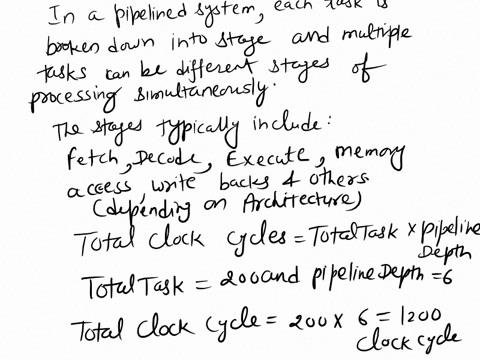 In a pipelined system, each task is
broken down into stage and multiple
tasks can be different stages of
processing simultaneously.
The stages typically include:
Fetch, Decode, Execute, memory
access, write backs & others
(depending on Architecture)
Total Clock Cycles = Total Task × pipeline
Depth
Total Task = 200 and pipeline Depth = 6
Total Clock Cycle = 200 × 6 = 1200
Clock cycle